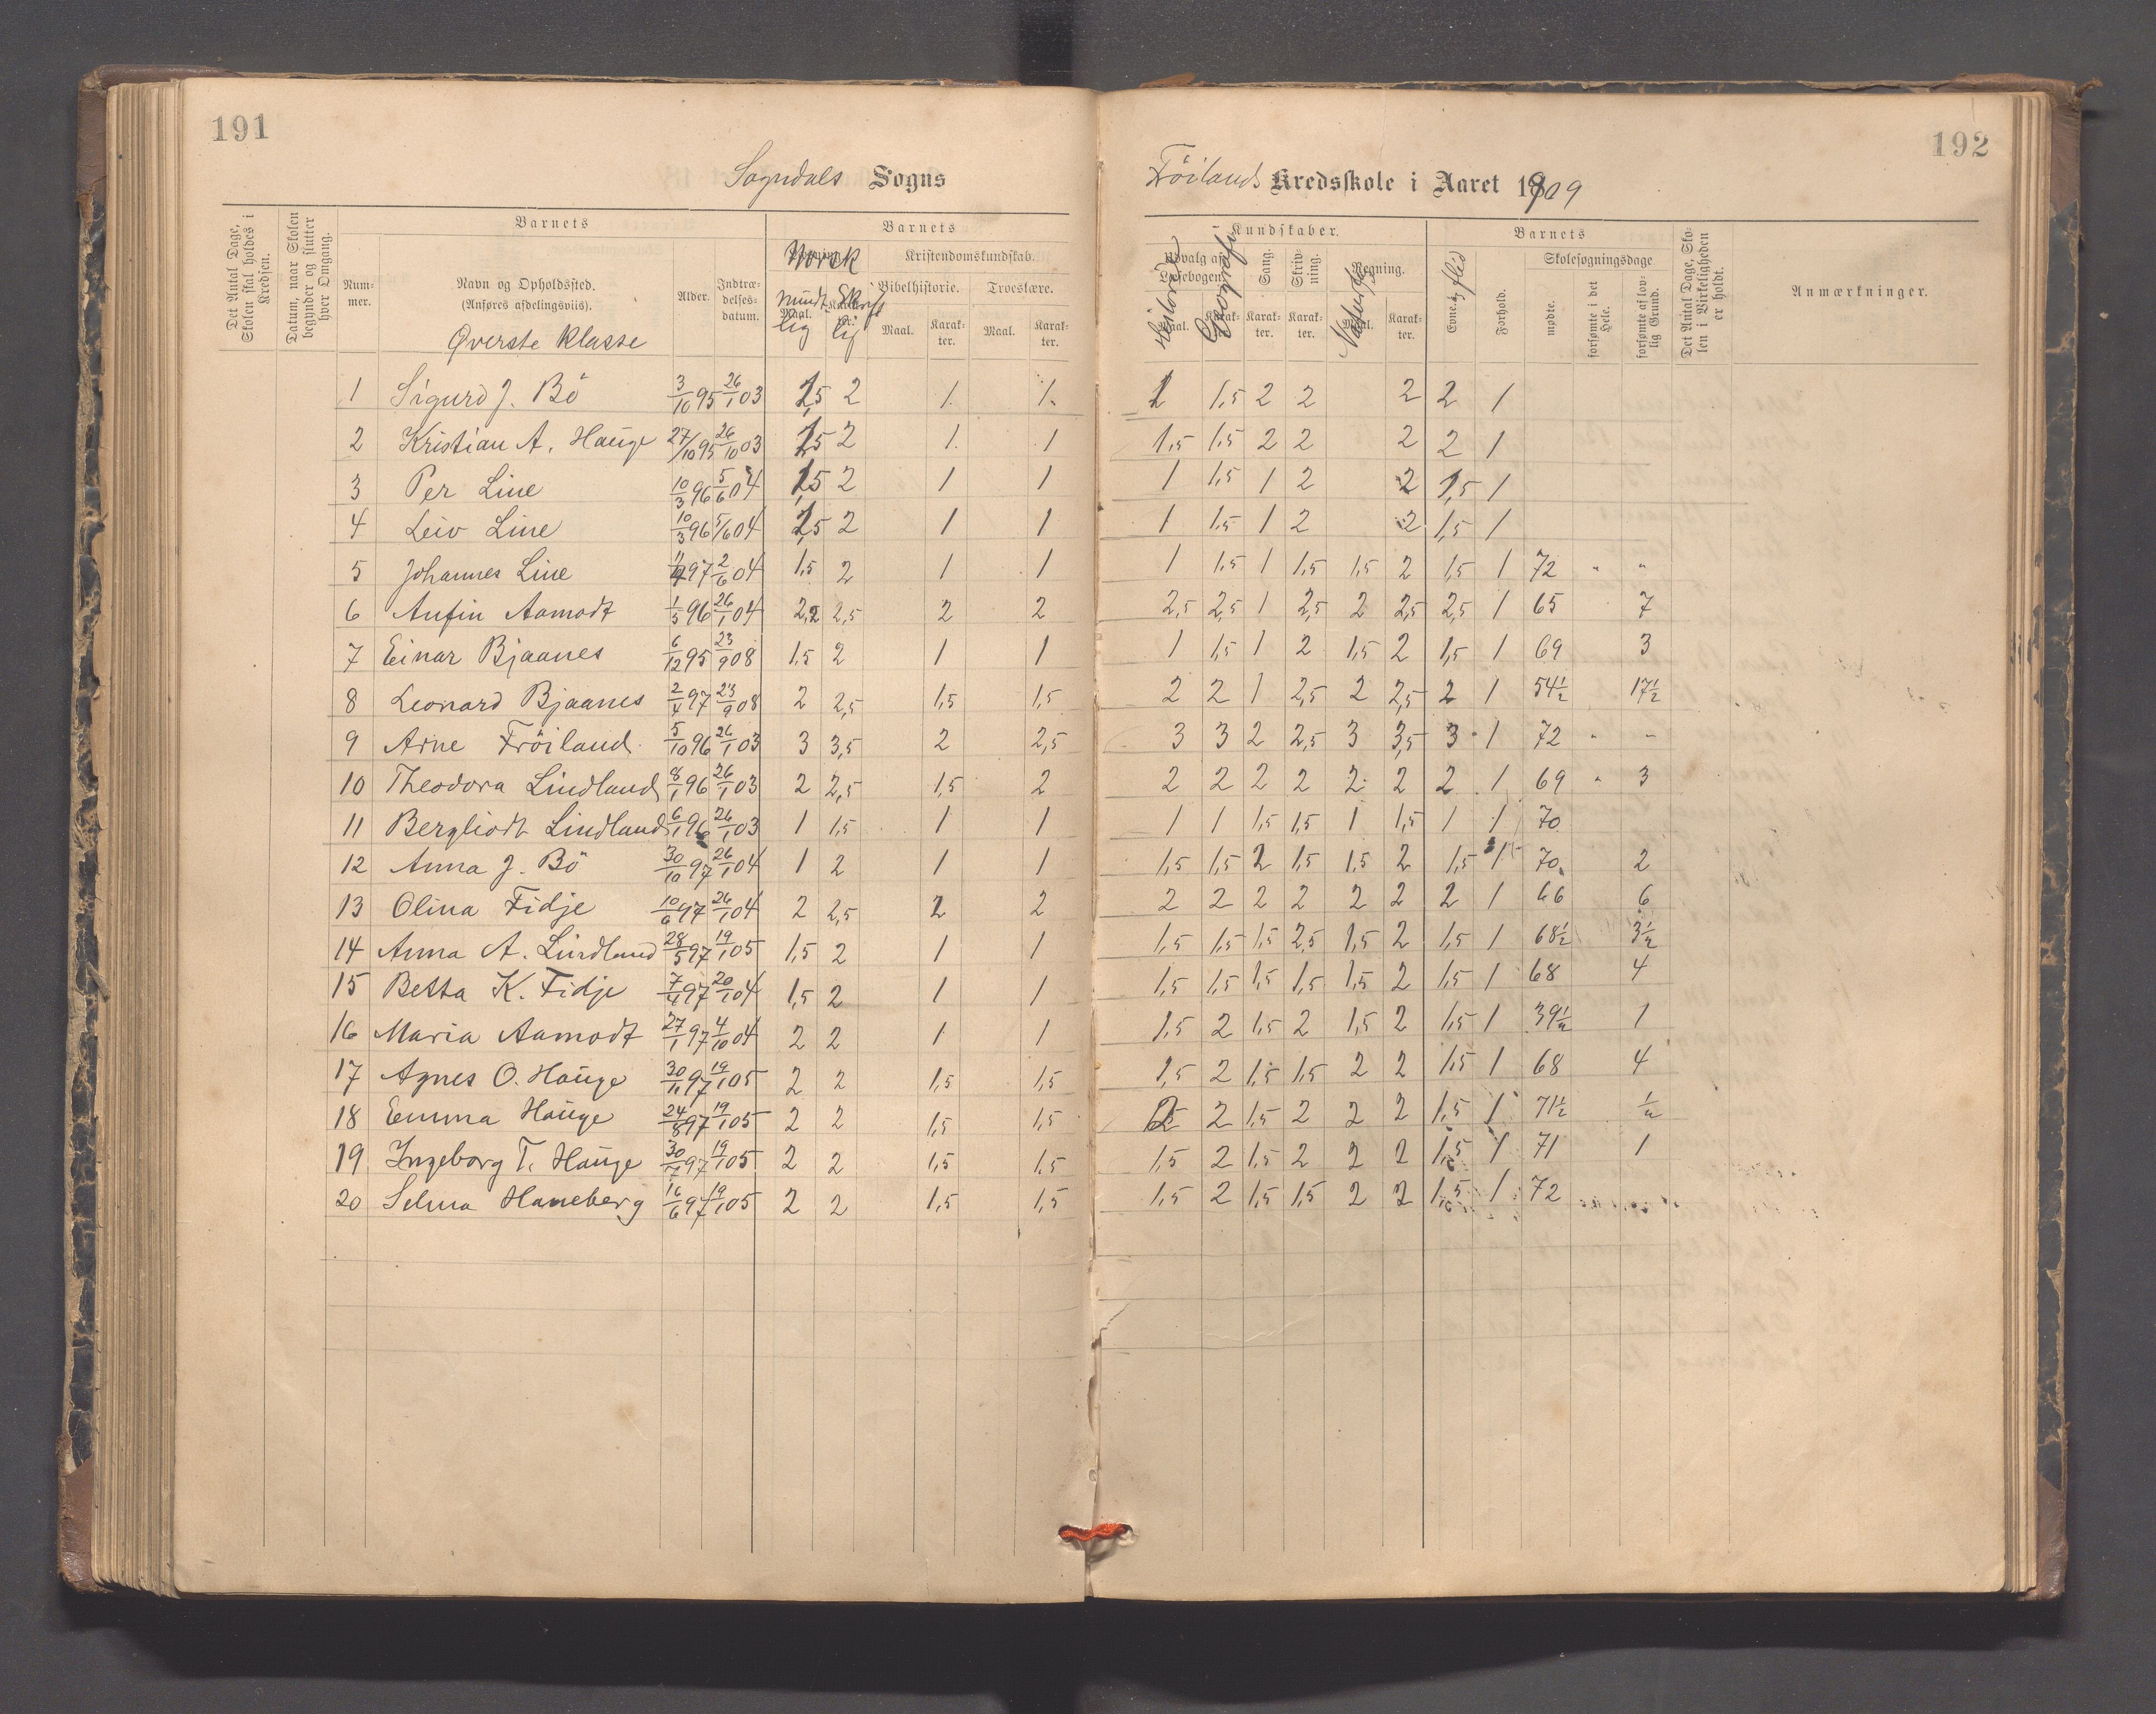 191
192
Sogndals Sogns
Fröilands Kredsskole i Aaret 1909
Det Antal Dage, Skolen skal holdes i Kredsen.
Datum, naar Skolen begynder og slutter hver Omgang.
Barnets
Nummer.
Navn og Opholdssted.
(Anføres afdelingsviis).
Øverste Klasse
Alder.
Indtrædelsesdatum.
Barnets
Norsk
mundtlig
Skriftlig
Maal.
Kristendomskundskab.
Bibelhistorie.
Maal.
Karakter.
Troeslære.
Maal.
Karakter.
Kundskaber.
Udvalg af Læsebogen.
Historie
Geografi
Sang.
Karakter.
Skrivning.
Karakter.
Regning.
Maal.
Karakter.
Barnets
Evne. & flid
Forhold.
Skolesøgningsdage
mødte.
forsømte i det Hele.
forsømte af lovlig Grund.
Det Antal Dage, Skolen i Virkeligheden er holdt.
Anmærkninger.
1 Sigurd J. Bö 3/10 95 26/1 03 1,5 2 1 1 1 1,5 2 2 2 2 1
2 Kristian A. Hauge 27/10 95 26/10 03 1,5 2 1 1 1,5 1,5 2 2 2 2 1
3 Per Line 10/3 96 5/6 04 1,5 2 1 1 1 1,5 1 2 2 1,5 1
4 Leiv Line 10/3 96 5/6 04 1,5 2 1 1 1 1,5 1 2 2 1,5 1
5 Johannes Line 11/4 97 2/6 04 1,5 2 1 1 1 1,5 1 1,5 1,5 2 1,5 1 72 " "
6 Anfin Aamodt 1/5 96 26/1 04 2,2 2,5 2 2 2,5 2,5 1 2,5 2 2,5 2,5 1 65 7
7 Einar Bjaanes 6/12 95 23/9 08 1,5 2 1 1 1 1,5 1 2 1,5 2 1,5 1 69 3
8 Leonard Bjaanes 2/4 97 23/9 08 2 2,5 1,5 1,5 2 2 1 2,5 2 2,5 2 1 54½ 17½
9 Arne Fröiland 5/10 96 26/1 03 3 3,5 2 2,5 3 3 2 2,5 3 3,5 3 1 72 " "
10 Theodora Lindland 8/1 96 26/1 03 2 2,5 1,5 2 2 2 2 2 2 2 2 1 69 " 3
11 Bergliodt Lindland 6/1 96 26/1 03 1 1,5 1 1 1 1 1,5 1,5 1 1,5 1 1 70
12 Anna J. Bö 30/10 97 26/1 04 1 2 1 1 1,5 1,5 2 1,5 1,5 2 1,5 1 70 2
13 Olina Fidje 10/6 97 26/1 04 2 2,5 2 2 2 2 2 2 2 2 2 1 66 6
14 Anna A. Lindland 28/5 97 19/1 05 1,5 2 1 1 1,5 1,5 1,5 2,5 1,5 2 1,5 1 68½ 3½
15 Betta K. Fidje 7/4 97 20/1 04 1,5 2 1 1 1,5 1,5 1,5 1,5 1,5 2 1,5 1 68 4
16 Maria Aamodt 27/1 97 4/10 04 2 2 1 1 1,5 2 1,5 2 1,5 2 1,5 1 39½ 1
17 Agnes O. Hauge 30/11 97 19/1 05 2 2 1,5 1,5 1,5 2 1,5 1,5 2 2 1,5 1 68 4
18 Emma Hauge 24/8 97 19/1 05 2 2 1,5 1,5 2 2 1,5 2 2 2 1,5 1 71½ ½
19 Ingeborg T. Hauge 30/7 97 19/1 05 2 2 1,5 1,5 1,5 2 1,5 2 2 2 1,5 1 71 1
20 Selma Haneberg 16/6 97 19/1 05 2 2 1,5 1,5 1,5 2 1,5 1,5 2 2 1,5 1 72